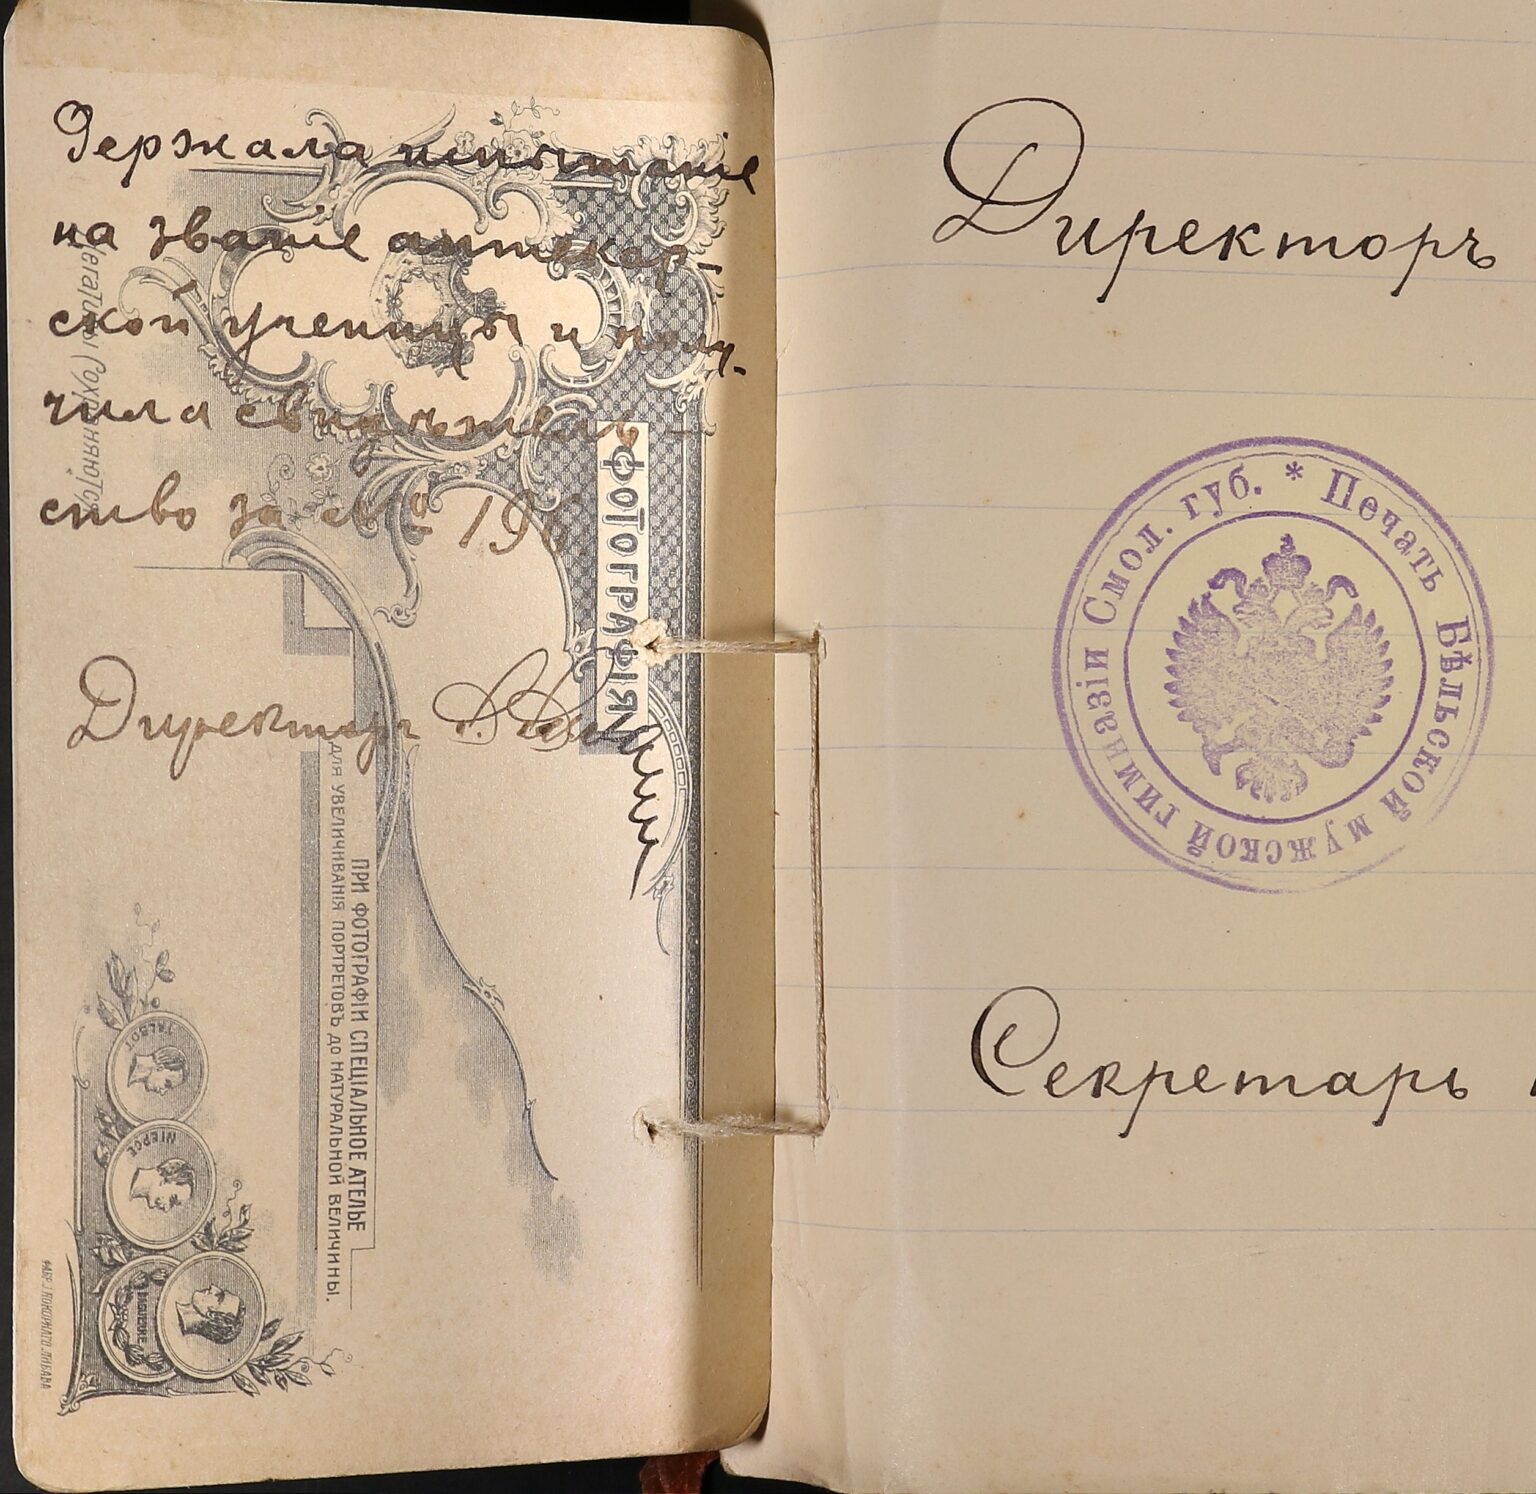 Держала испытанiе
на званiе аптекар-
ской ученицы и полу-
чила свидѣтель-
ство за № 196.
Директоръ
Негативы сохраняются
ФОТОГРАФIЯ
ПРИ ФОТОГРАФIИ СПЕЦIАЛЬНОЕ АТЕЛЬЕ
для УВЕЛИЧИВАНIЯ ПОРТРЕТОВЪ до НАТУРАЛЬНОЙ ВЕЛИЧИНЫ.
TALBOT
NIEPCE
DAGUERRE
Директоръ
Печать Бѣльской мужской гимназiи Смол. губ. *
Секретарь